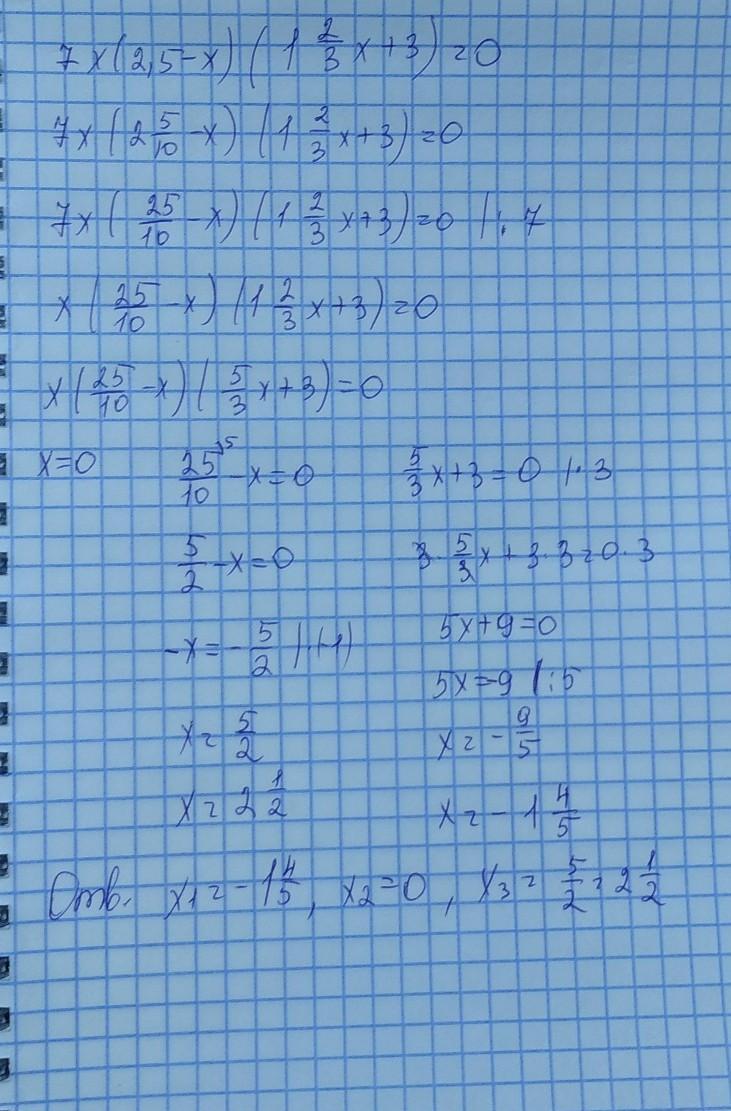 7x(2,5-x)(1 2/3 x+3)=0
7x(2 5/10 -x)(1 2/3 x+3)=0
7x(25/10 -x)(1 2/3 x+3)=0 |:7
x(25/10 -x)(1 2/3 x+3)=0
x(25/10 -x)(5/3 x+3)=0
x=0 25/10 -x=0 5/3 x+3=0 |·3
5/2 -x=0 3·5/3 x+3·3=0·3
-x=-5/2 |·(-1) 5x+9=0
5x=-9 |:5
x=5/2 x=-9/5
x=2 1/2 x=-1 4/5
Отв. x1=-1 4/5, x2=0, x3=5/2=2 1/2